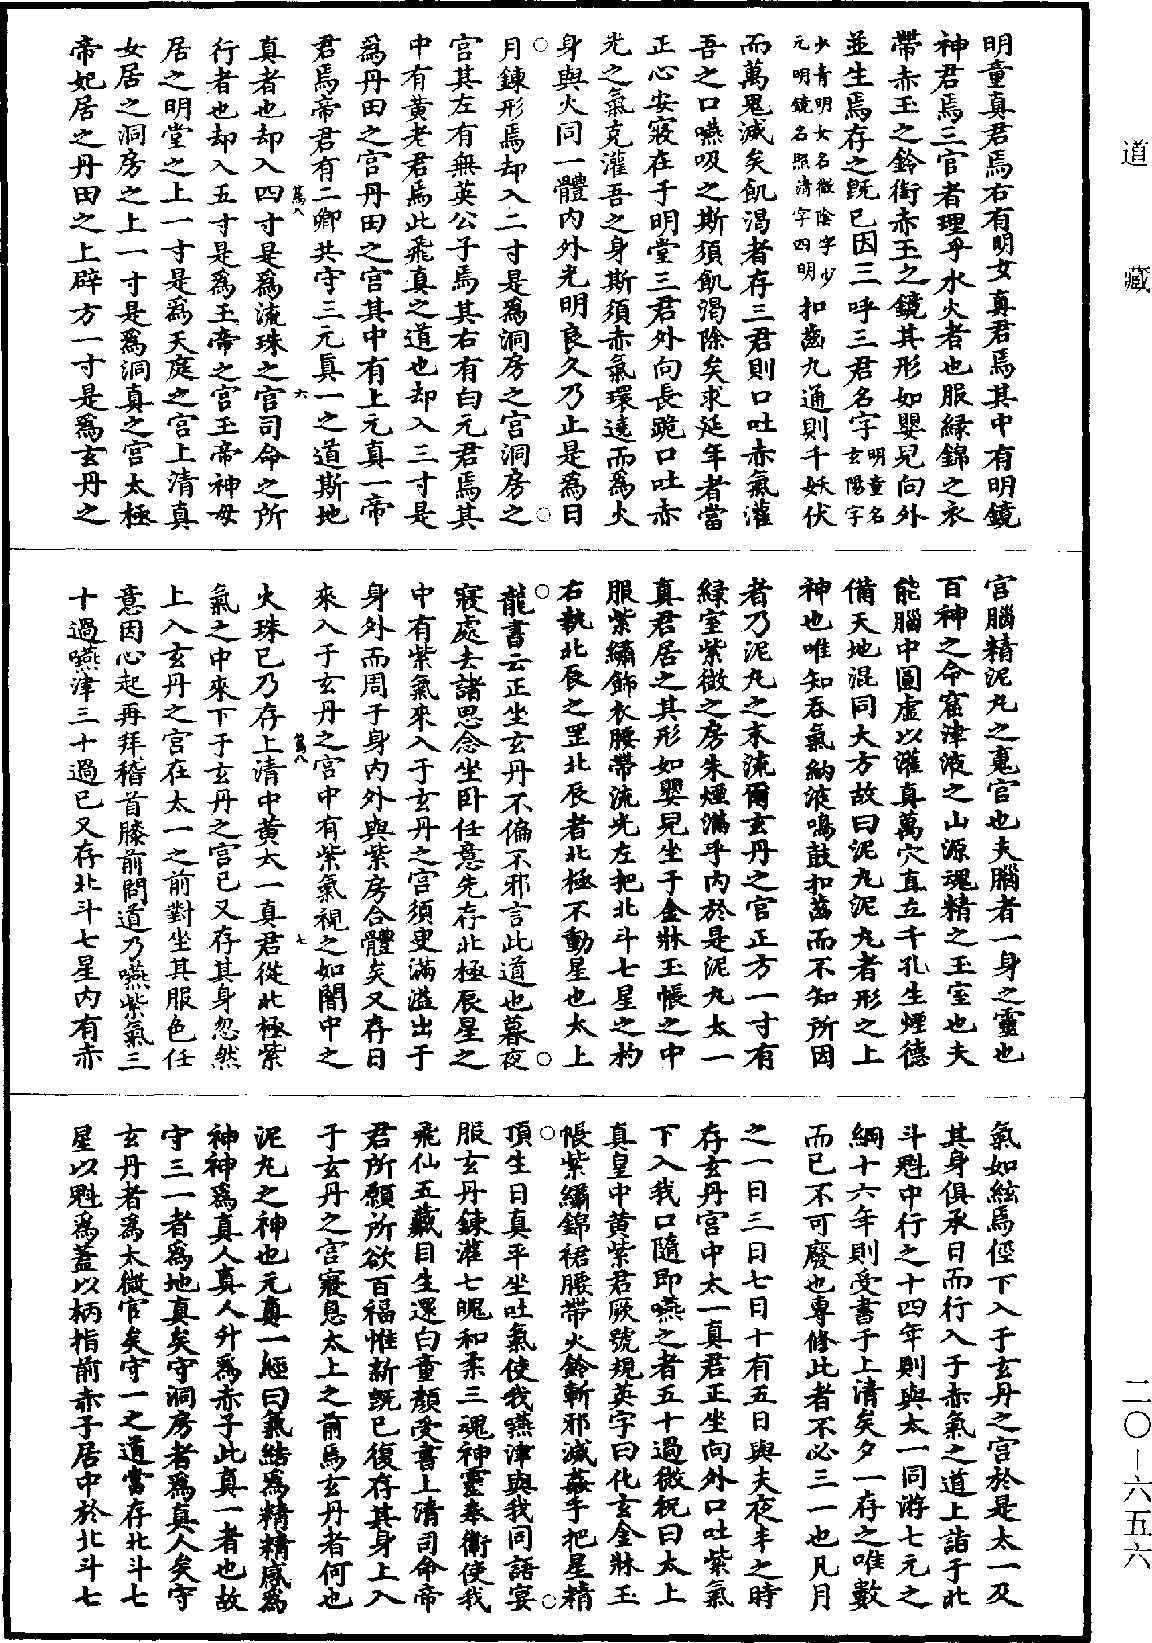 道藏
明童真君焉右有明女真君焉其中有明鏡
神君焉三官者理乎水火者也服緑錦之衣
帶赤玉之鈴銜赤玉之鏡其形如嬰兒向外
並生焉存之既已因三呼三君名字明童名玄陽字
少青明女名微陰字少元明鏡名照清字四明扣齒九通則千妖伏
而萬鬼滅矣飢渴者存三君則口吐赤氣灌
吾之口嚥吸之斯須飢渴除矣求延年者當
正心安寢在于明堂三君外向長跪口吐赤
光之氣克灌吾之身斯須赤氣環遶而為火
身與火同一體内外光明良久乃止是為日
月鍊形焉却入二寸是爲洞房之宫洞房之
宫其左有無英公子焉其右有白元君焉其
中有黄老君焉此飛真之道也却入三寸是
爲丹田之宫丹田之宫其中有上元真一帝
君焉帝君有二卿共守三元真一之道斯地
萬八
六
真者也却入四寸是爲流珠之宫司命之所
行者也却入五寸是爲玉帝之宫玉帝神母
居之明堂之上一寸是爲天庭之宫上清真
女居之洞房之上一寸是爲洞真之宫太極
帝妃居之丹田之上辟方一寸是爲玄丹之
宫腦精泥丸之䰟宫也夫腦者一身之靈也
百神之命窟津液之山源魂精之玉室也夫
能腦中圓虛以灌真萬穴直立千孔生煙德
備天地混同大方故曰泥丸泥丸者形之上
神也唯知吞氣納液鳴鼓扣齒而不知所因
者乃泥丸之末流爾玄丹之宫正方一寸有
緑室紫微之房朱煙滿乎内於是泥丸太一
真君居之其形如嬰兒坐于金牀玉帳之中
服紫繡飾衣腰帶流光左把北斗七星之杓
右執北辰之罡北辰者北極不動星也太上
龍書云正坐玄丹不偏不邪言此道也暮夜
寢處去諸思念坐卧任意先存北極辰星之
中有紫氣來入于玄丹之宫須臾滿溢出于
身外而周于身内外與紫房合體矣又存日
來入于玄丹之宫中有紫氣視之如闇中之
萬八
七
火珠已乃存上清中黄太一真君從北極紫
氣之中來下于玄丹之宫已又存其身忽然
上入玄丹之宫在太一之前對坐其服色任
意因心起再拜稽首膝前問道乃嚥紫氣三
十過嚥津三十過已又存北斗七星内有赤
氣如絃焉徑下入于玄丹之宫於是太一及
其身俱承日而行入于赤氣之道上詣于北
斗魁中行之十四年則與太一同游七元之
綱十六年則受書于上清矣夕一存之唯數
而已不可廢也專修此者不必三一也凡月
之一日三日七日十有五日與夫夜半之時
存玄丹宫中太一真君正坐向外口吐紫氣
下入我口隨即嚥之者五十過微祝曰太上
真皇中黄紫君厥號規英字曰化玄金牀玉
帳紫繡錦裙腰帶火鈴斬邪滅姦手把星精
頂生日真平坐吐氣使我嚥津與我同語宴
服玄丹鍊灌七魄和柔三魂神靈奉衛使我
飛仙五藏自生還白童顔受書上清司命帝
君所願所欲百福惟新既已復存其身上入
于玄丹之宫寢息太上之前焉玄丹者何也
泥丸之神也元真一經曰氣結爲精精感爲
神神爲真人真人升爲赤子此真一者也故
守三一者爲地真矣守洞房者爲真人矣守
玄丹者爲太微官矣守一之道當存北斗七
星以魁爲蓋以柄指前赤子居中於北斗七
二〇—六五六